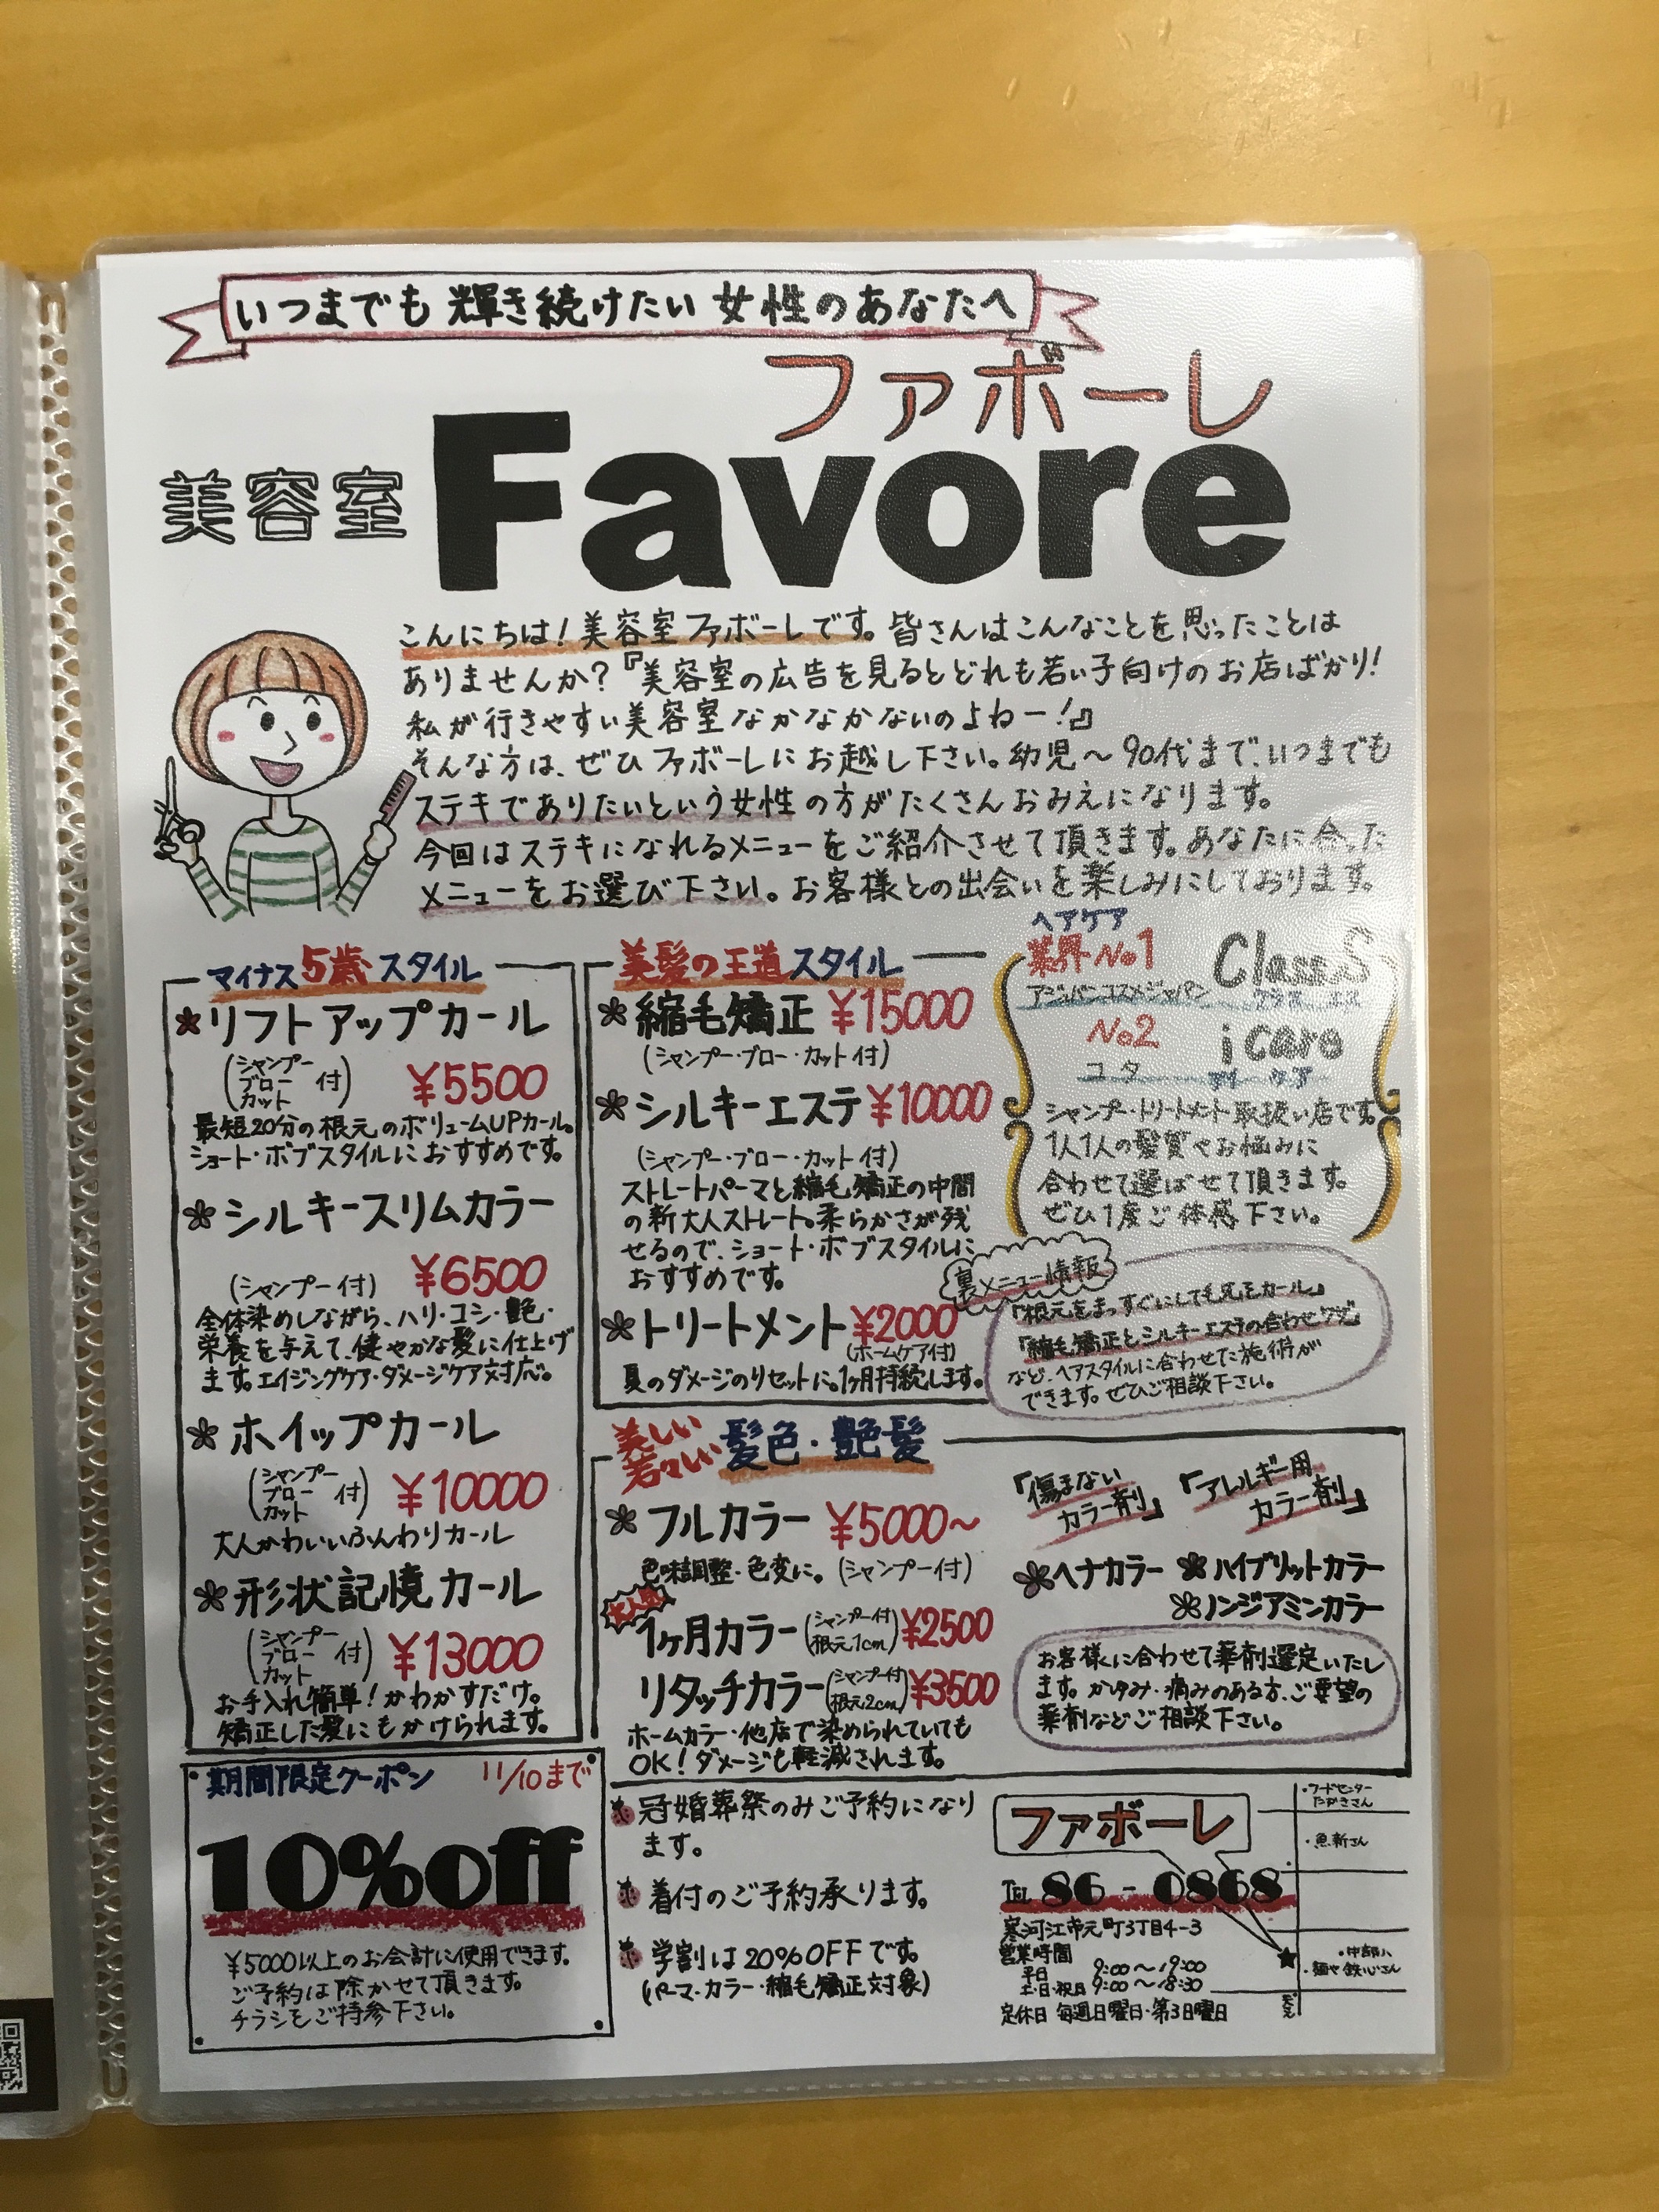 いつまでも輝き続けたい女性のあなたへ
ファボーレ
美容室 Favore
こんにちは！美容室ファボーレです。皆さんはこんなことを思ったことは
ありませんか？『美容室の広告を見るとどれも若い子向けのお店ばかり！
私が行きやすい美容室なかなかないのよねー！』
そんな方は、ぜひファボーレにお越し下さい。幼児〜90代まで、いつまでも
ステキでありたいという女性の方がたくさんおみえになります。
今回はステキになれるメニューをご紹介させて頂きます。あなたに合った
メニューをお選び下さい。お客様との出会いを楽しみにしております。
マイナス5歳スタイル
リフトアップカール
(シャンプー
ブロー
カット 付)
¥5500
最短20分の根元のボリュームUPカール。
ショート・ボブスタイルにおすすめです。
シルキースリムカラー
(シャンプー付) ¥6500
全体染めしながら、ハリ・コシ・艶・
栄養を与えて、健やかな髪に仕上げ
ます。エイジングケア・ダメージケア対応。
ホイップカール
(シャンプー
ブロー
カット 付)
¥10000
大人かわいいふんわりカール
形状記憶カール
(シャンプー
ブロー
カット 付)
¥13000
お手入れ簡単！かわかすだけ。
矯正した髪にもかけられます。
美髪の王道スタイル
縮毛矯正 ¥15000
(シャンプー・ブロー・カット付)
シルキーエステ ¥10000
(シャンプー・ブロー・カット付)
ストレートパーマと縮毛矯正の中間
の新大人ストレート。柔らかさが残
せるので、ショート・ボブスタイルに
おすすめです。
トリートメント ¥2000
(ホームケア付)
夏のダメージのリセットに。1ヶ月持続します。
ヘアケア
業界No1 ClassS
アジュバンコスメジャパン クラス エス
No2 icare
ユタ アイ ケア
シャンプー・トリートメント取扱い店です。
1人1人の髪質やお悩みに
合わせて選ばせて頂きます。
ぜひ1度ご体感下さい。
裏メニュー情報
『根元をまっすぐにしても毛先カール』
『縮毛矯正とシルキーエステの合わせワザ』
など、ヘアスタイルに合わせた施術が
できます。ぜひご相談下さい。
美しい
若々しい 髪色・艶髪
フルカラー ¥5000〜
色味調整・色変に。(シャンプー付)
大人気
1ヶ月カラー (シャンプー付
根元1cm) ¥2500
リタッチカラー (シャンプー付
根元2cm) ¥3500
ホームカラー・他店で染められていても
OK！ダメージも軽減されます。
『傷まない
カラー剤』
『アレルギー用
カラー剤』
ヘナカラー ハイブリットカラー
ノンジアミンカラー
お客様に合わせて薬剤選定いたし
ます。かゆみ・痛みのある方、ご要望の
薬剤などご相談下さい。
期間限定クーポン 11/10まで
10%off
¥5000以上のお会計に使用できます。
ご予約は除かせて頂きます。
チラシをご持参下さい。
冠婚葬祭のみご予約になり
ます。
着付のご予約承ります。
学割は20%OFFです。
(パーマ・カラー・縮毛矯正対象)
ファボーレ
TEL 86-0868
寒河江市元町3丁目4-3
営業時間
平日 9:00〜19:00
土・日・祝日 9:00〜18:30
定休日 毎週月曜日・第3日曜日
・フードセンター
たかきさん
・魚新さん
・中部小
・麺や鉄心さん